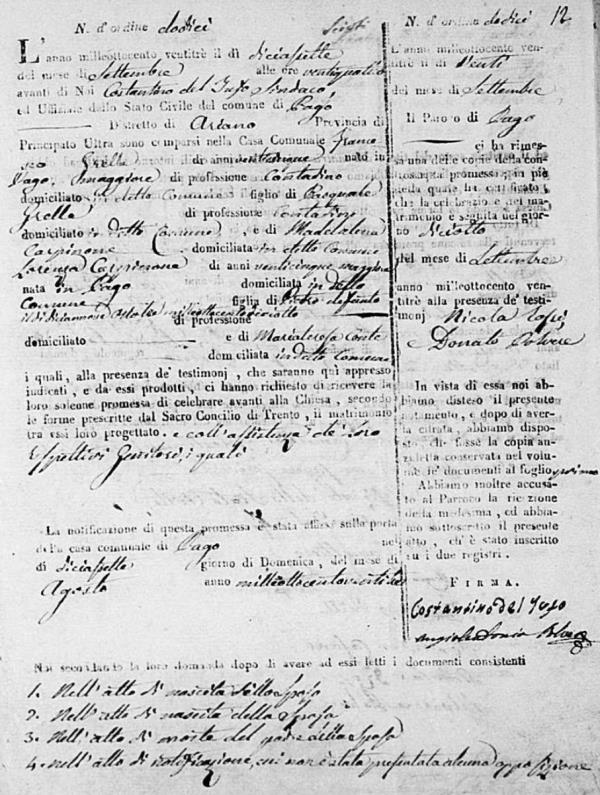 N. d'ordine dodici
L'anno milleottocento ventitrè il dì diciasette
del mese di Settembre alle ore ventiquattro
avanti di Noi Costantino del Juso Sindaco,
ed Uffiziale dello Stato Civile del comune di Pago
Distretto di Ariano Provincia di
Principato Ultra sono comparsi nella Casa Comunale Frances
co Grella di anni venticinque nato in
Pago, maggiore di professione Contadino
domiciliato in detto Comune figlio di Pasquale
Grella di professione Contadino
domiciliato in detto Comune, e di Madalena
Carpinone domiciliata in detto Comune
Lorenza Carpinone di anni venticinque maggiore
nata in Pago domiciliata in detto
Comune figlia di Pietro defunto
il dì diciannove milleottocento
di professione
domiciliato e di Mariateresa Conte
domiciliata in detto Comune
i quali, alla presenza de' testimonj, che saranno qui appresso
indicati, e da essi prodotti, ci hanno richiesto di ricevere la
loro solenne promessa di celebrare avanti alla Chiesa, secondo
le forme prescritte dal Sacro Concilio di Trento, il matrimonio
tra essi loro progettato. e coll'assistenza de' loro
rispettivi Genitori, i quali
La notificazione di questa promessa è stata affissa sulla porta
della casa comunale di Pago nel
dì diciasette giorno di Domenica, del mese di
Agosto anno milleottocentoventitre
Noi secondando la loro domanda dopo di avere ad essi letti i documenti consistenti
1. Nell'atto di nascita dello Sposo
2. Nell'atto di nascita della Sposa
3. Nell'atto di morte del padre della Sposa
4. nell'atto di notificazione, cui non è stata presentata alcuna opposizione
N. d'ordine dodici 12
L'anno milleottocento ven-
titrè il dì Venti
del mese di Settembre
Il Parroco di Pago
ci ha rimes-
sa una delle copie della con-
troscritta promessa; in piè
della quale ha certificato,
che la celebrazione del ma-
trimonio è seguita nel gior-
no diciotto
del mese di Settembre
anno milleottocento ven-
titrè alla presenza de' testi-
monj Nicola
e Donato Polvere
In vista di essa noi ab-
biamo disteso il presente
notamento, e dopo di aver-
la cifrata, abbiamo dispo-
sto, che fosse la copia an-
zidetta conservata nel volu-
me de' documenti al foglio primo
Abbiamo inoltre accusa-
to al Parroco la ricezione
della medesima, ed ab-
biamo sottoscritto il presente
atto, ch'è stato inscritto
su i due registri.
FIRMA.
Costantino del Juso